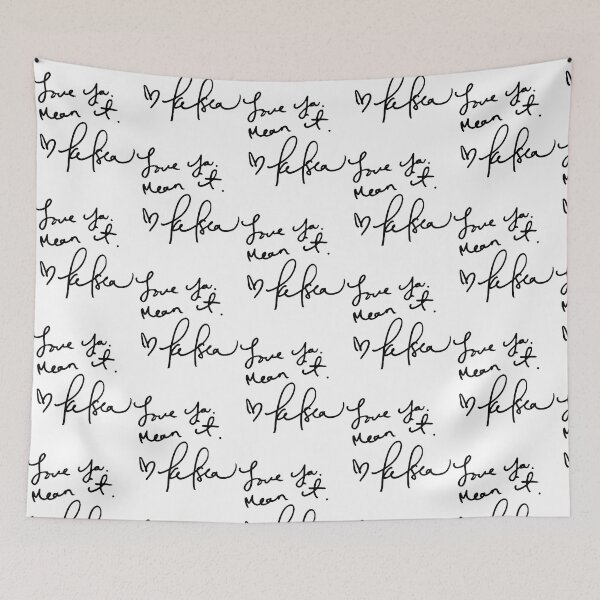 Love Ya.
Mean it.
♡ Kelsea
♡ Kelsea
Love Ya.
Mean it.
♡ Kelsea
♡ Kelsea
Love Ya.
Mean it.
♡ Kelsea
Love Ya.
Mean it.
♡ Kelsea
Love Ya.
Mean it.
♡ Kelsea
Love Ya.
Mean it.
♡ Kelsea
Love Ya.
Mean it.
♡ Kelsea
Love Ya.
Mean it.
♡ Kelsea
Love Ya.
Mean it.
♡ Kelsea
Love Ya.
Mean it.
♡ Kelsea
Love Ya.
Mean it.
♡ Kelsea
Love Ya.
Mean it.
♡ Kelsea
Love Ya.
Mean it.
♡ Kelsea
Love Ya.
Mean it.
♡ Kelsea
Love Ya.
Mean it.
♡ Kelsea
Love Ya.
Mean it.
♡ Kelsea
Love Ya.
Mean it.
Love Ya.
Mean it.
Love Ya.
Mean it.